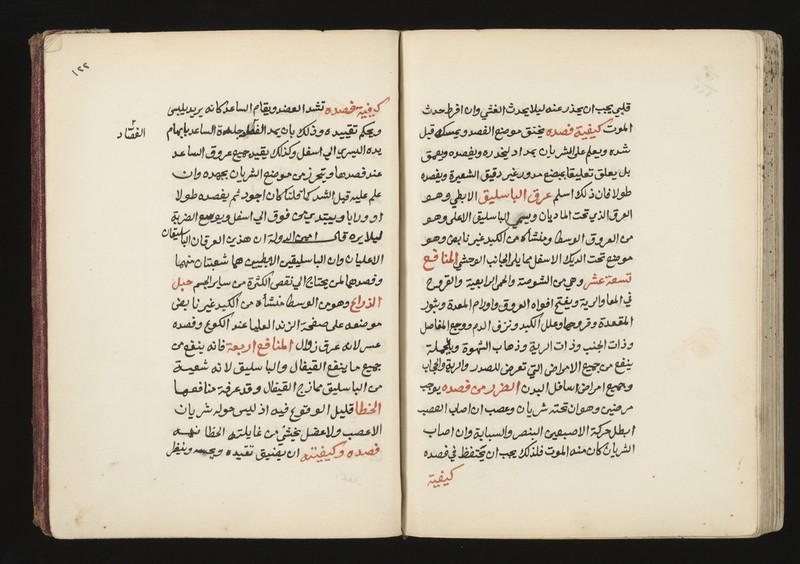 قلبي يجب ان يحذر عنه ليلا يحدث الغشي وان افرط حدث
الموت كيفية فصده يخنق موضع الفصد ويمسك قبل
شده ويعلم على الشريان بمداد ليحذره ويفصده وبعمق
بل يعلق تعليقا بمبضع مدور غير دقيق الشعيرة ويفصد
طولا فان ذلك اسلم عرق الباسليق الابطي وهو
العرق الذي تحت الماديان ويسمى الباسليق الاعلى وهو
من العروق الوسطا ومنشاه من الكبد غير نابض وهو
موضع تحت الاسفل مما يلي الجانب الوحشي المنافع
تسعة عشر وهي من الشوصة والحمى الرابعية والقروح
في المعا والرية ويفتح افواه العروق واورام المعدة وبثور
المقعدة وقروحها وعلل الكبد ونزف الدم ووجع المفاصل
وذات الجنب وذات الرية وذهاب الشهوة وبالجملة
ينفع من جميع الامراض التي تعرض للصدر والرية والحجاب
وجميع امراض اسافل البدن الضرر من فصده يوجب
مرضين وهو ان تحته شريان وعصب ان اصاب العصب
ابطل حركة الاصبعين البنصر والسبابة وان اصاب
الشريان كان منه الموت فلذلك يجب ان يحتفظ في فصده
كيفية
١٢٢
كيفية فصده تشد العضد ويقام الساعد كانه يريد يلبس
ويحكم تقييده وذلك بان يمد جلدة الساعد بابهام
الفصاد
يده اليسرى الى اسفل وكذلك يقيد جميع عروق الساعد
عند فصدها ويتحرز من موضع الشريان بجهده وان
علم عليه قبل الشد كما قلنا كان اجود ثم يفصده طولا
او ورابا ويبتدي من فوق الى اسفل ويوسع الضربة
ليلا يره قال امين الدولة ان هذين العرقان الباسليقان
الاعليان وان الباسليقين الابطيين هما شعبتان منهما
وفصدها لمن يحتاج الى نقص الكثرة من ساير الجسم حبل
الذراع وهو من الوسطا منشاه من الكبد غير نابض
موضعه على صفحة الزند العليا عند الكوع وفصده
عسر لانه عرق زوال المنافع اربعة فانه ينفع من
جميع ما ينفع القيفال والباسليق لانه شعبة
من الباسليق ممازج القيفال وقد عرفة منافعهما
الخطا قليل الوقوع فيه اذ ليس حوله شريان
الاعصب ولا عضل يخشى من غايلته الخطا
فصده وكيفيته ان يضيق تقيده ويجسه وينظر